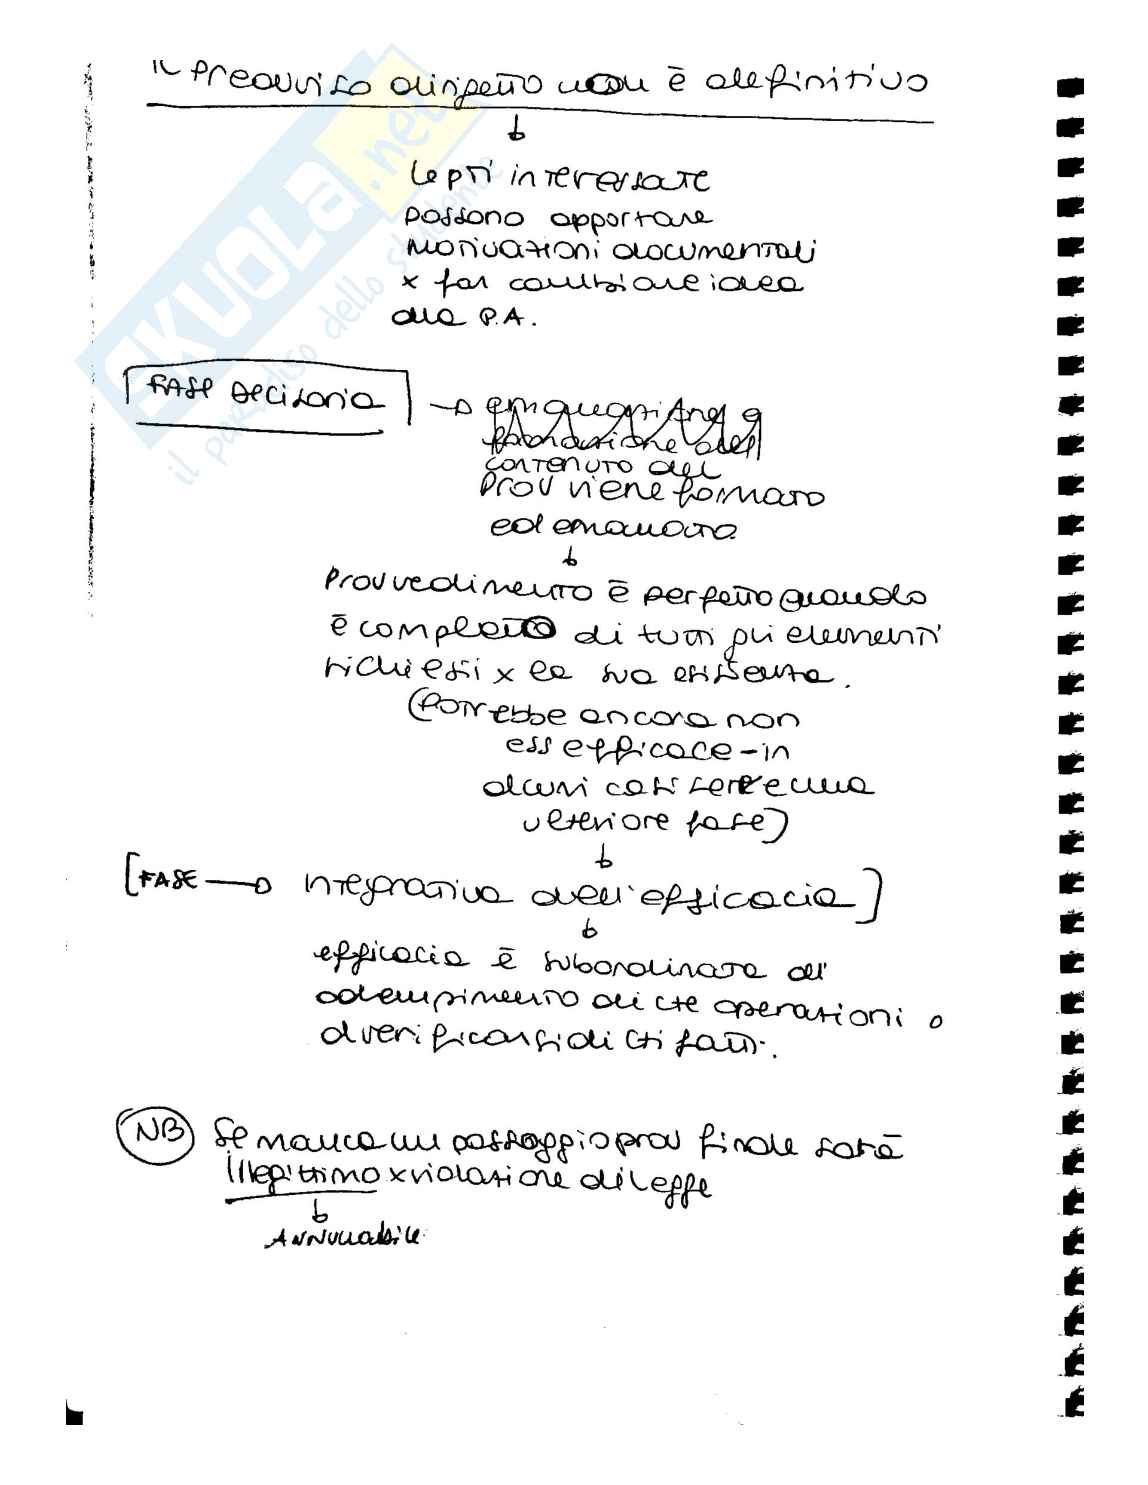 Il preavviso di rigetto non è definitivo
le pti interessate
possono apportare
motivazioni documentali
x far cambiare idea
alla P.A.
FASE DECISORIA
emanazione e
formazione dell
contenuto del
prov viene formato
ed emanato
Provvedimento è perfetto quando
è completo di tutti gli elementi
richiesti x la sua esistenza.
(Potrebbe ancora non
ess efficace - in
alcuni casi serve una
ulteriore fase)
[FASE integrativa dell'efficacia]
efficacia è subordinata all'
adempimento di cte operazioni o
al verificarsi di cti fatti.
NB Se manca un passaggio prov finale sarà
illegittimo x violazione di legge
ANNULLABILE
SKUOLA.net
il paradiso dello studente